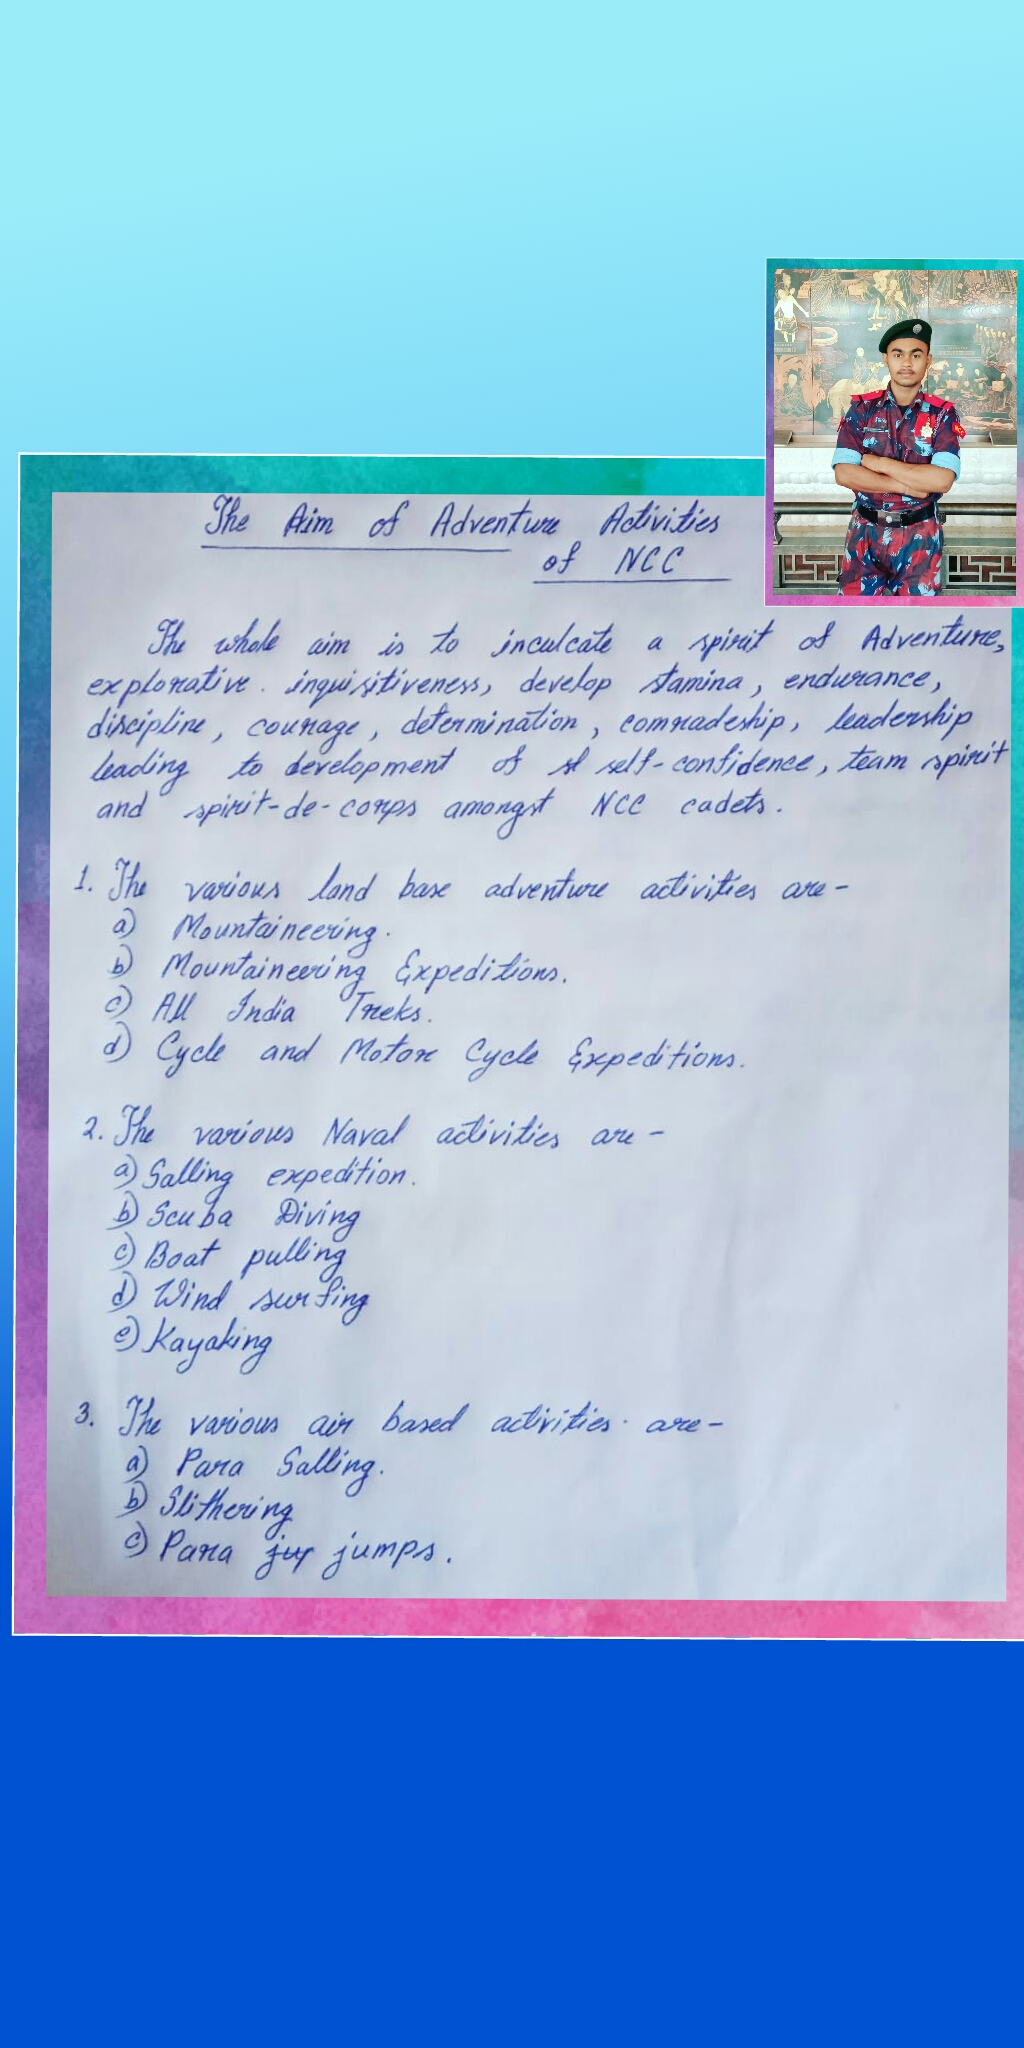 The Aim of Adventure Activities
of NCC
The whole aim is to inculcate a spirit of Adventure,
explorative. inquisitiveness, develop stamina, endurance,
discipline, courage, determination, comradeship, leadership
leading to development of st self-confidence, team spirit
and spirit-de-corps amongst NCC cadets.
1. The various land base adventure activities are-
a) Mountaineering.
b) Mountaineering Expeditions.
c) All India Treks.
d) Cycle and Motor Cycle Expeditions.
2. The various Naval activities are-
a) Salling expedition.
b) Scuba Diving
c) Boat pulling
d) Wind surfing
e) Kayaking
3. The various air based activities. are-
a) Para Salling.
b) Slithering
c) Para juy jumps.